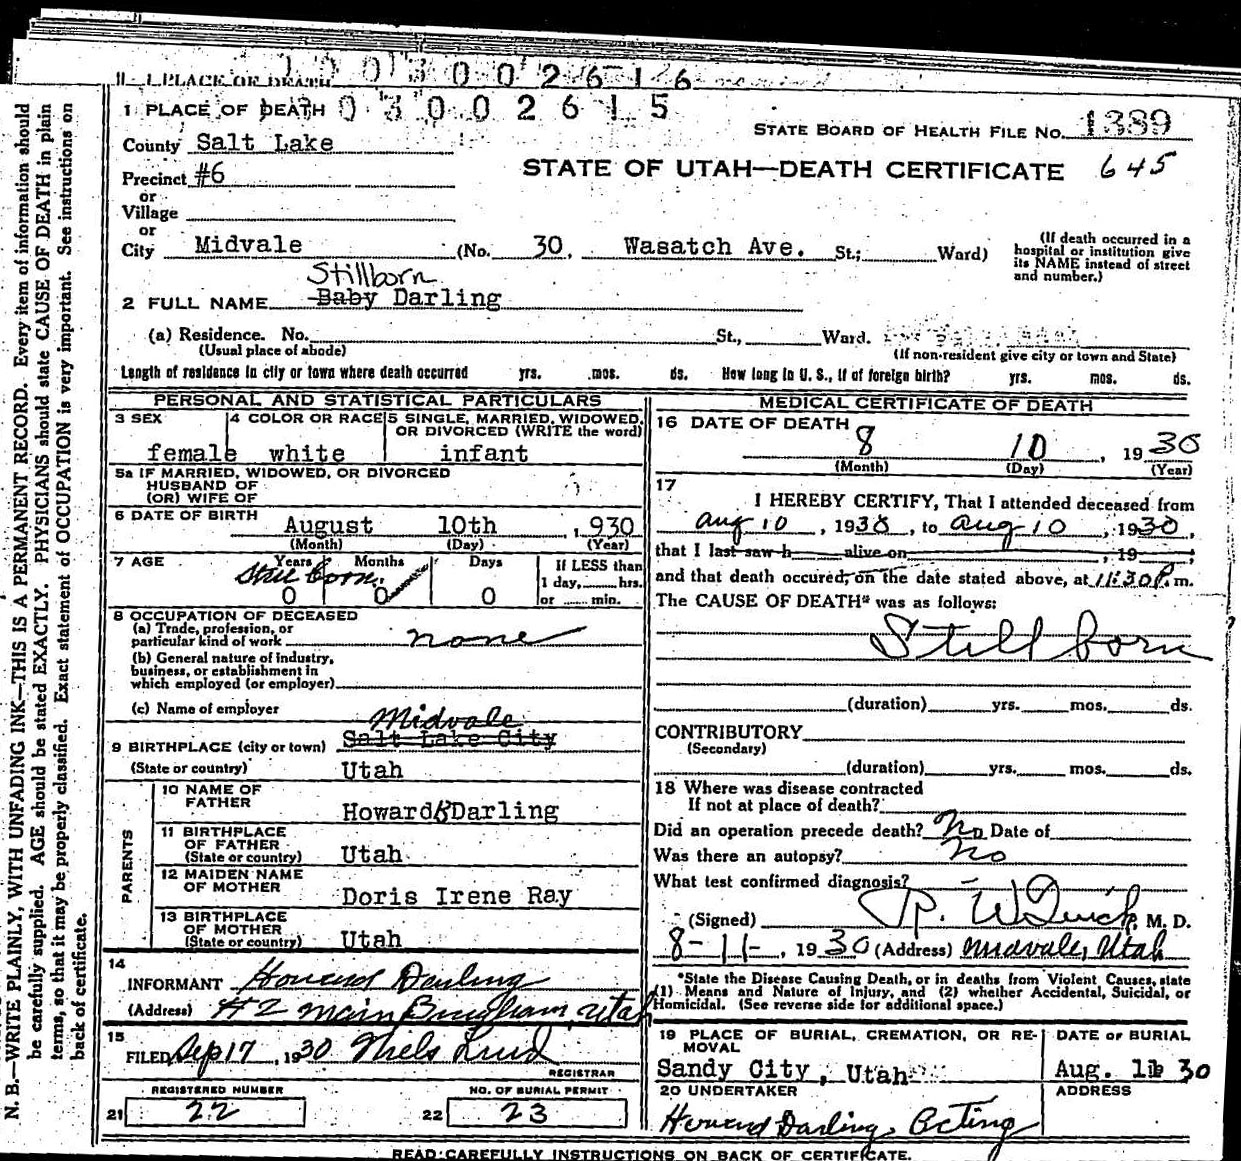 1 PLACE OF DEATH
0 0 3 0 0 2 6 1 6
1 PLACE OF DEATH 0 3 0 0 2 6 1 5
STATE BOARD OF HEALTH FILE NO. 1389
County Salt Lake
STATE OF UTAH—DEATH CERTIFICATE 645
Precinct #6
or
Village
or
City Midvale (No. 30, Wasatch Ave. St.; Ward)
(If death occurred in a hospital or institution give its NAME instead of street and number.)
Stillborn
2 FULL NAME Baby Darling
(a) Residence. No. St., Ward.
(Usual place of abode) (If non-resident give city or town and State)
Length of residence in city or town where death occurred yrs. mos. ds. How long in U. S., if of foreign birth? yrs. mos. ds.
PERSONAL AND STATISTICAL PARTICULARS
3 SEX 4 COLOR OR RACE 5 SINGLE, MARRIED, WIDOWED,
OR DIVORCED (WRITE the word)
female white infant
5a IF MARRIED, WIDOWED, OR DIVORCED
HUSBAND OF
(OR) WIFE OF
6 DATE OF BIRTH
August 10th , 1930
(Month) (Day) (Year)
7 AGE Years Months Days If LESS than
Still born. 1 day, hrs.
0 0 0 or min.
8 OCCUPATION OF DECEASED
(a) Trade, profession, or
particular kind of work none
(b) General nature of industry,
business, or establishment in
which employed (or employer)
(c) Name of employer
Midvale
9 BIRTHPLACE (city or town) Salt Lake City
(State or country) Utah
PARENTS
10 NAME OF
FATHER Howard R Darling
11 BIRTHPLACE
OF FATHER
(State or country) Utah
12 MAIDEN NAME
OF MOTHER Doris Irene Ray
13 BIRTHPLACE
OF MOTHER
(State or country) Utah
14
INFORMANT Howard Darling
(Address) #2 Main Bingham, Utah
15
FILED Sep 17, 1930 Niels Lind
REGISTRAR
REGISTERED NUMBER NO. OF BURIAL PERMIT
21 22 22 23
MEDICAL CERTIFICATE OF DEATH
16 DATE OF DEATH
8 10 , 1930
(Month) (Day) (Year)
17
I HEREBY CERTIFY, That I attended deceased from
Aug 10 , 1930, to Aug 10 , 1930,
that I last saw h alive on , 19 ;
and that death occured, on the date stated above, at 11:30 P. m.
The CAUSE OF DEATH* was as follows:
Stillborn
(duration) yrs. mos. ds.
CONTRIBUTORY
(Secondary)
(duration) yrs. mos. ds.
18 Where was disease contracted
If not at place of death?
Did an operation precede death? No Date of
Was there an autopsy? No
What test confirmed diagnosis?
(Signed) M. D.
8-11-, 1930 (Address) Midvale, Utah
*State the Disease Causing Death, or in deaths from Violent Causes, state
(1) Means and Nature of Injury, and (2) whether Accidental, Suicidal, or
Homicidal. (See reverse side for additional space.)
19 PLACE OF BURIAL, CREMATION, OR RE-
MOVAL DATE OF BURIAL
Sandy City, Utah Aug. 30
20 UNDERTAKER ADDRESS
Howard Darling, Acting
READ CAREFULLY INSTRUCTIONS ON BACK OF CERTIFICATE.
N. B.—WRITE PLAINLY, WITH UNFADING INK—THIS IS A PERMANENT RECORD. Every item of information should
be carefully supplied. AGE should be stated EXACTLY. PHYSICIANS should state CAUSE OF DEATH in plain
terms, so that it may be properly classified. Exact statement of OCCUPATION is very important. See instructions on
back of certificate.